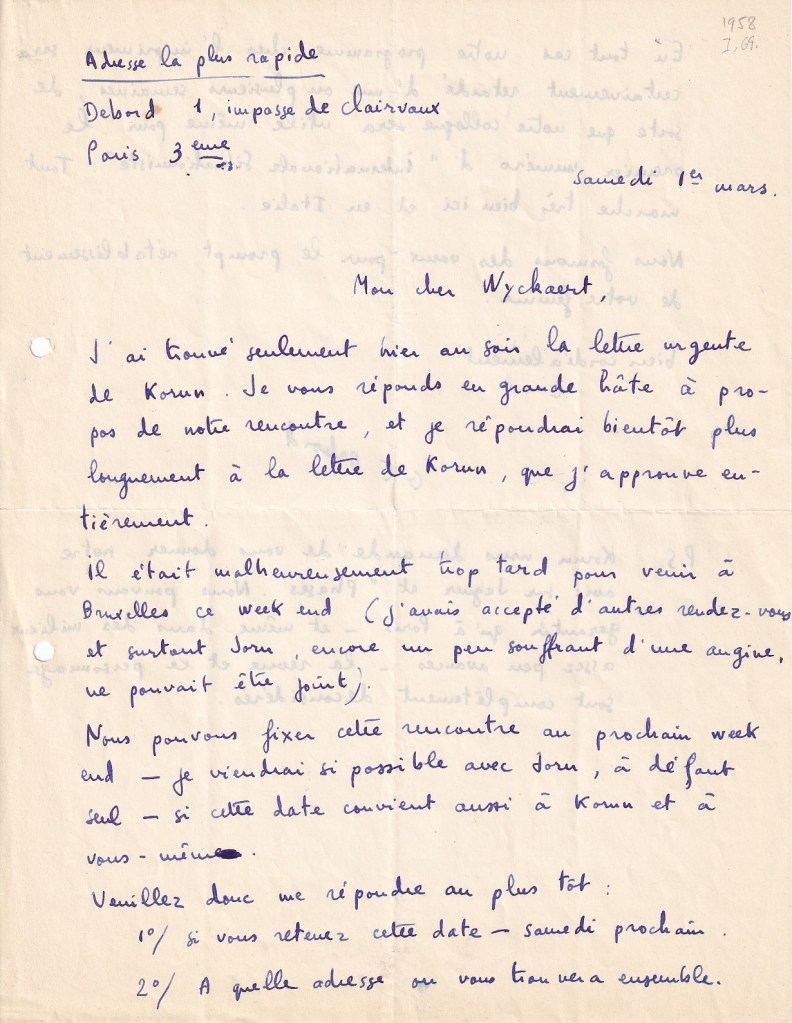 1958
I, 69.
Adresse la plus rapide
Debord 1, impasse de Clairvaux
Paris 3eme
samedi 1er mars.
Mon cher Wyckaert,
J'ai trouvé seulement hier au soir la lettre urgente
de Korun. Je vous réponds en grande hâte à pro-
pos de notre rencontre, et je répondrai bientôt plus
longuement à la lettre de Korun, que j'approuve en-
tièrement.
Il était malheureusement trop tard pour venir à
Bruxelles ce week end (j'avais accepté d'autres rendez-vous
et surtout Jorn, encore un peu souffrant d'une angine,
ne pouvait être joint).
Nous pouvons fixer cette rencontre au prochain week
end — je viendrai si possible avec Jorn, à défaut
seul — si cette date convient aussi à Korun et à
vous-même.
Veuillez donc me répondre au plus tôt :
1°/ si vous retenez cette date — samedi prochain.
2°/ A quelle adresse on vous trouvera ensemble.